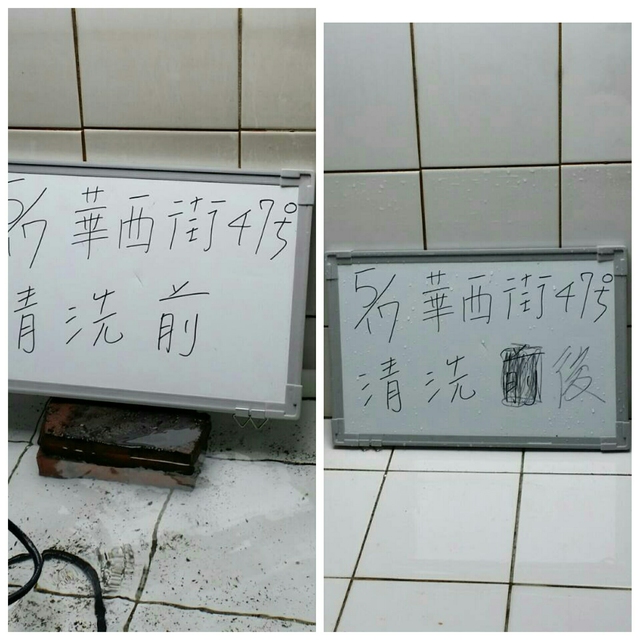 5/17 華西街47号
清洗前
5/17 華西街47号
清洗後